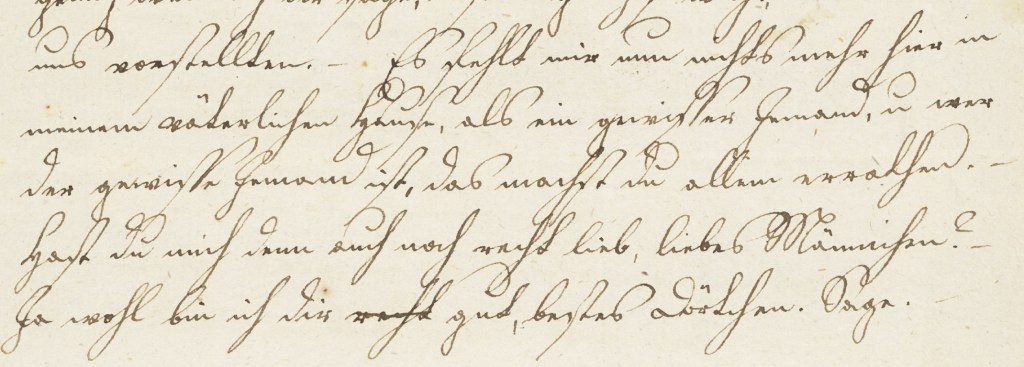 uns vorstellten. – Es fehlt mir nun nichts mehr hier in
meinem väterlichen Hause, als ein gewisser Jemand, u wer
der gewisse Jemand ist, das magst du allein errathen. –
Hast du mich denn auch noch recht lieb, liebes Männchen? –
Ja wohl bin ich dir recht gut, bestes Dörtchen. Sage.